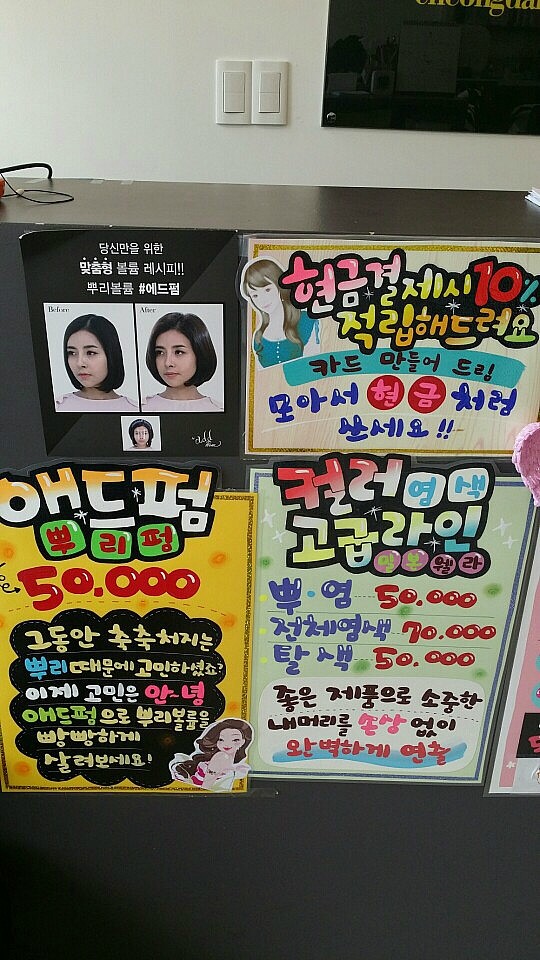 cheongdam
당신만을 위한
맞춤형 볼륨 레시피!!
뿌리볼륨 #애드펌
Before
After
현금결제시 10%
적립해드려요
카드 만들어 드림
모아서 현금처럼
쓰세요!!
애드펌
뿌리펌
50.000
그동안 축축처지는
뿌리때문에 고민하셨죠?
이제 고민은 안~녕
애드펌으로 뿌리볼륨을
빵빵하게
살려보세요!
컬러염색
고급라인
일본웰라
뿌·염 50.000
전체염색 70.000
탈색 50.000
좋은 제품으로 소중한
내머리를 손상 없이
완벽하게 연출